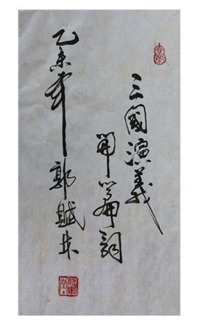 三國演義
開篇詞
乙未年郭賦林